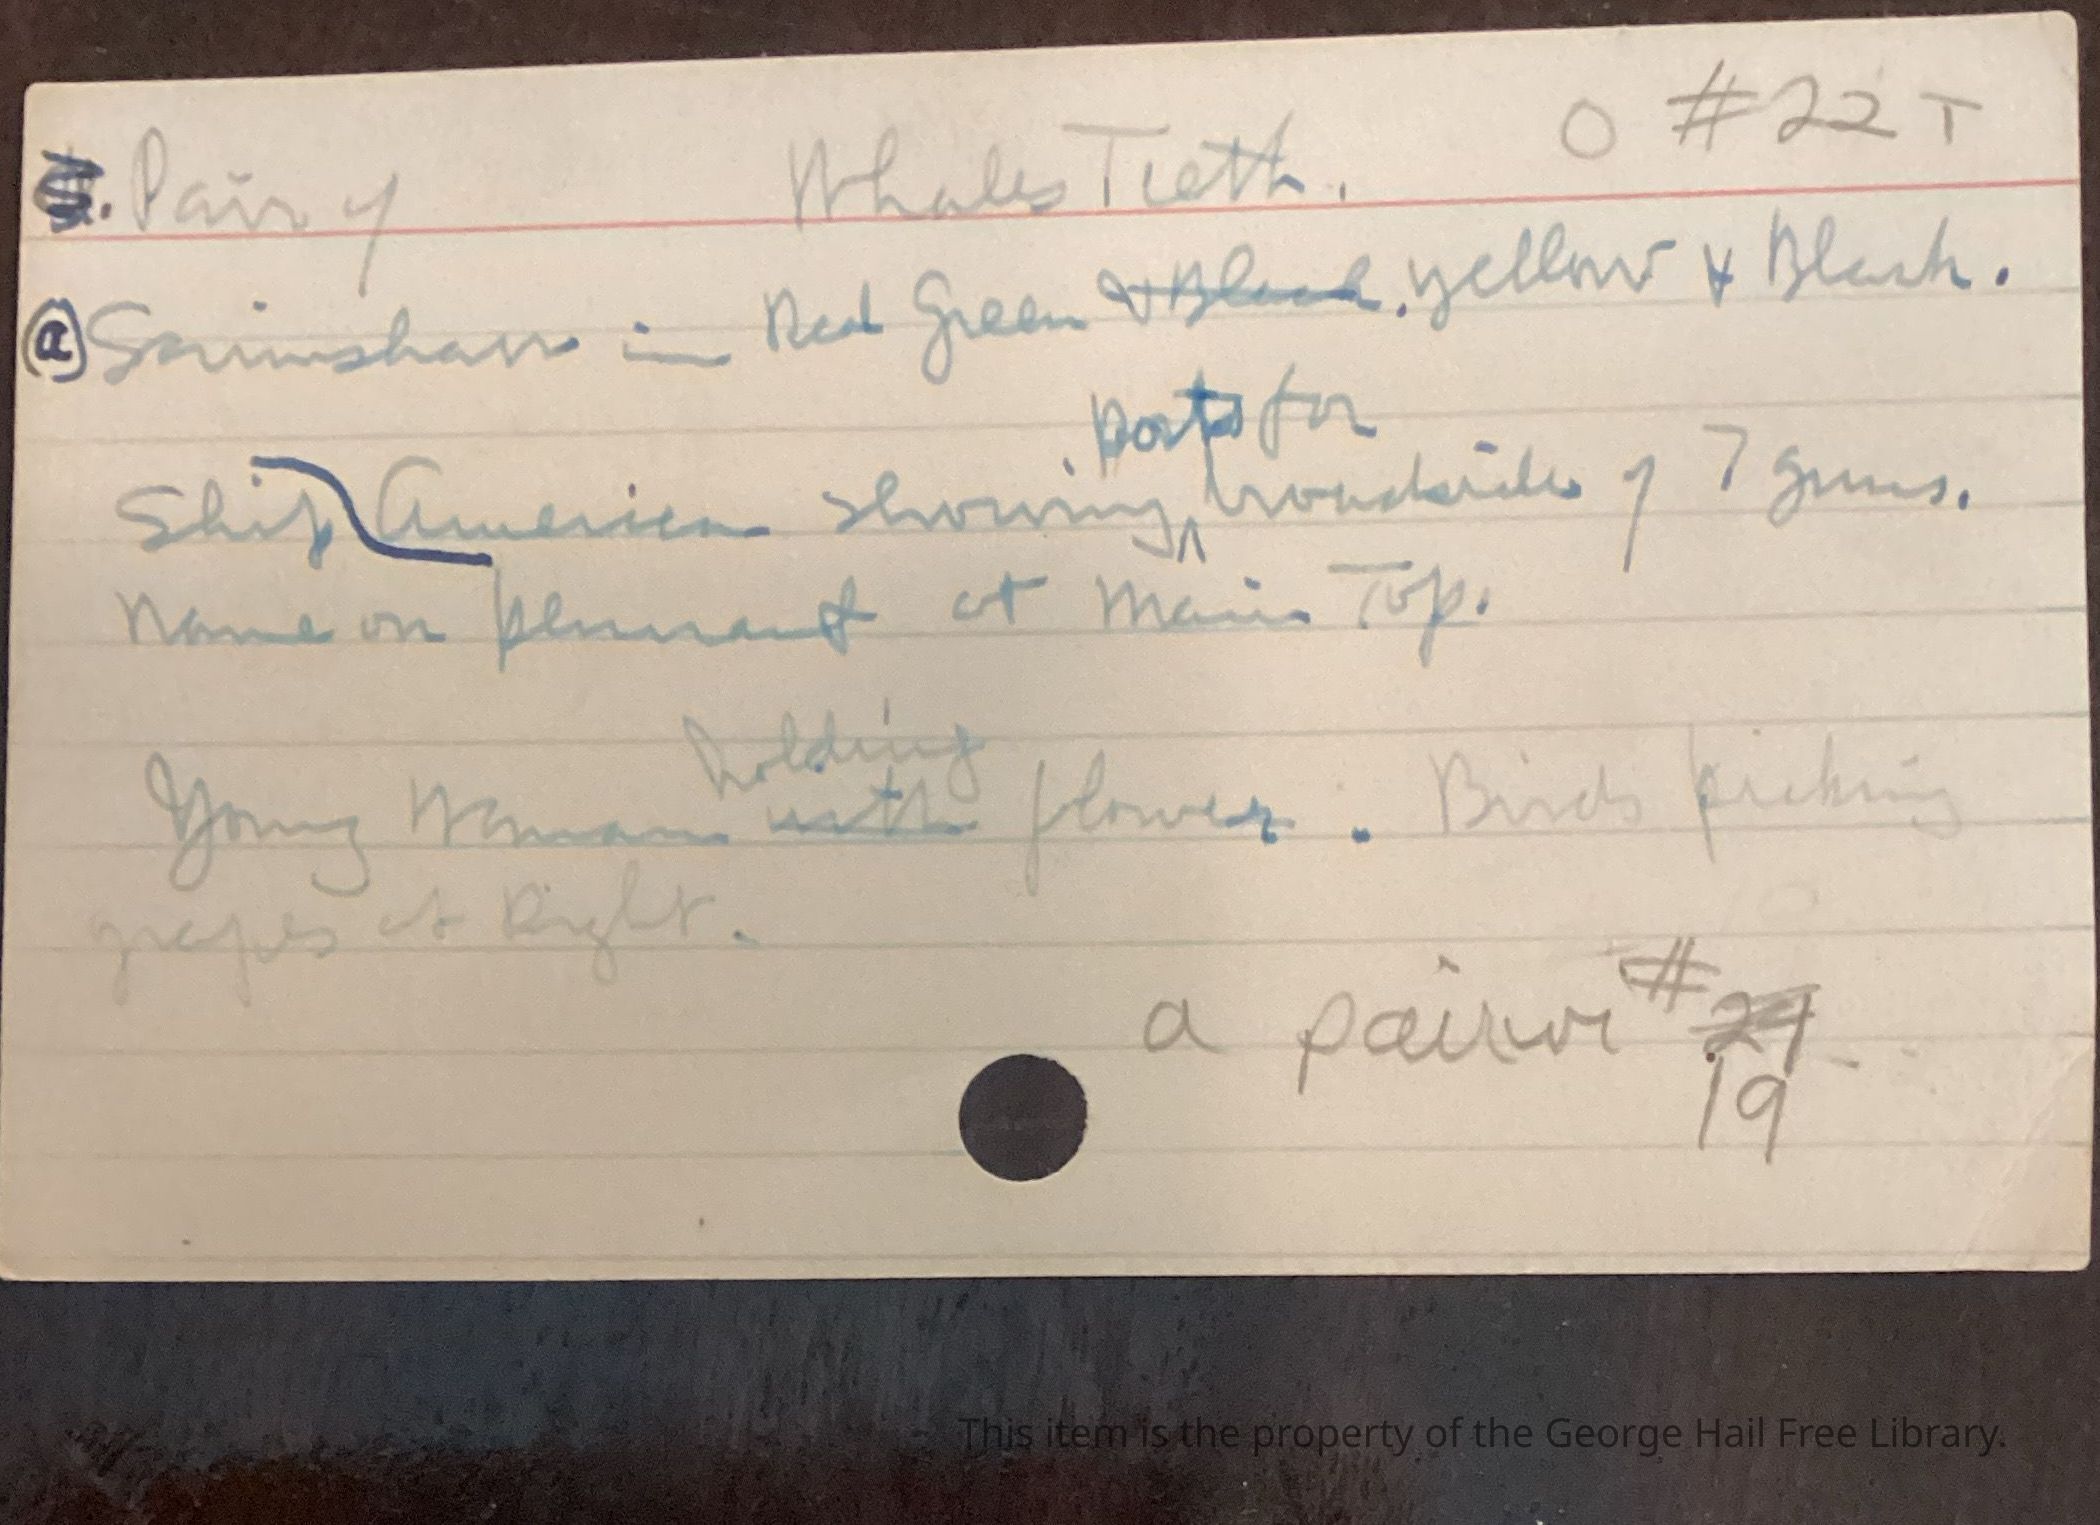 O #22 T
Pair of Whales Teeth.
(a) Scrimshaw in Red Green & Black. yellow & Black.
ports for
Ship America showing broadside of 7 guns.
Name on pennant at Main Top.
holding
Young Woman with flower. Birds picking
grapes at Right.
a pair w #21
19
This item is the property of the George Hail Free Library.